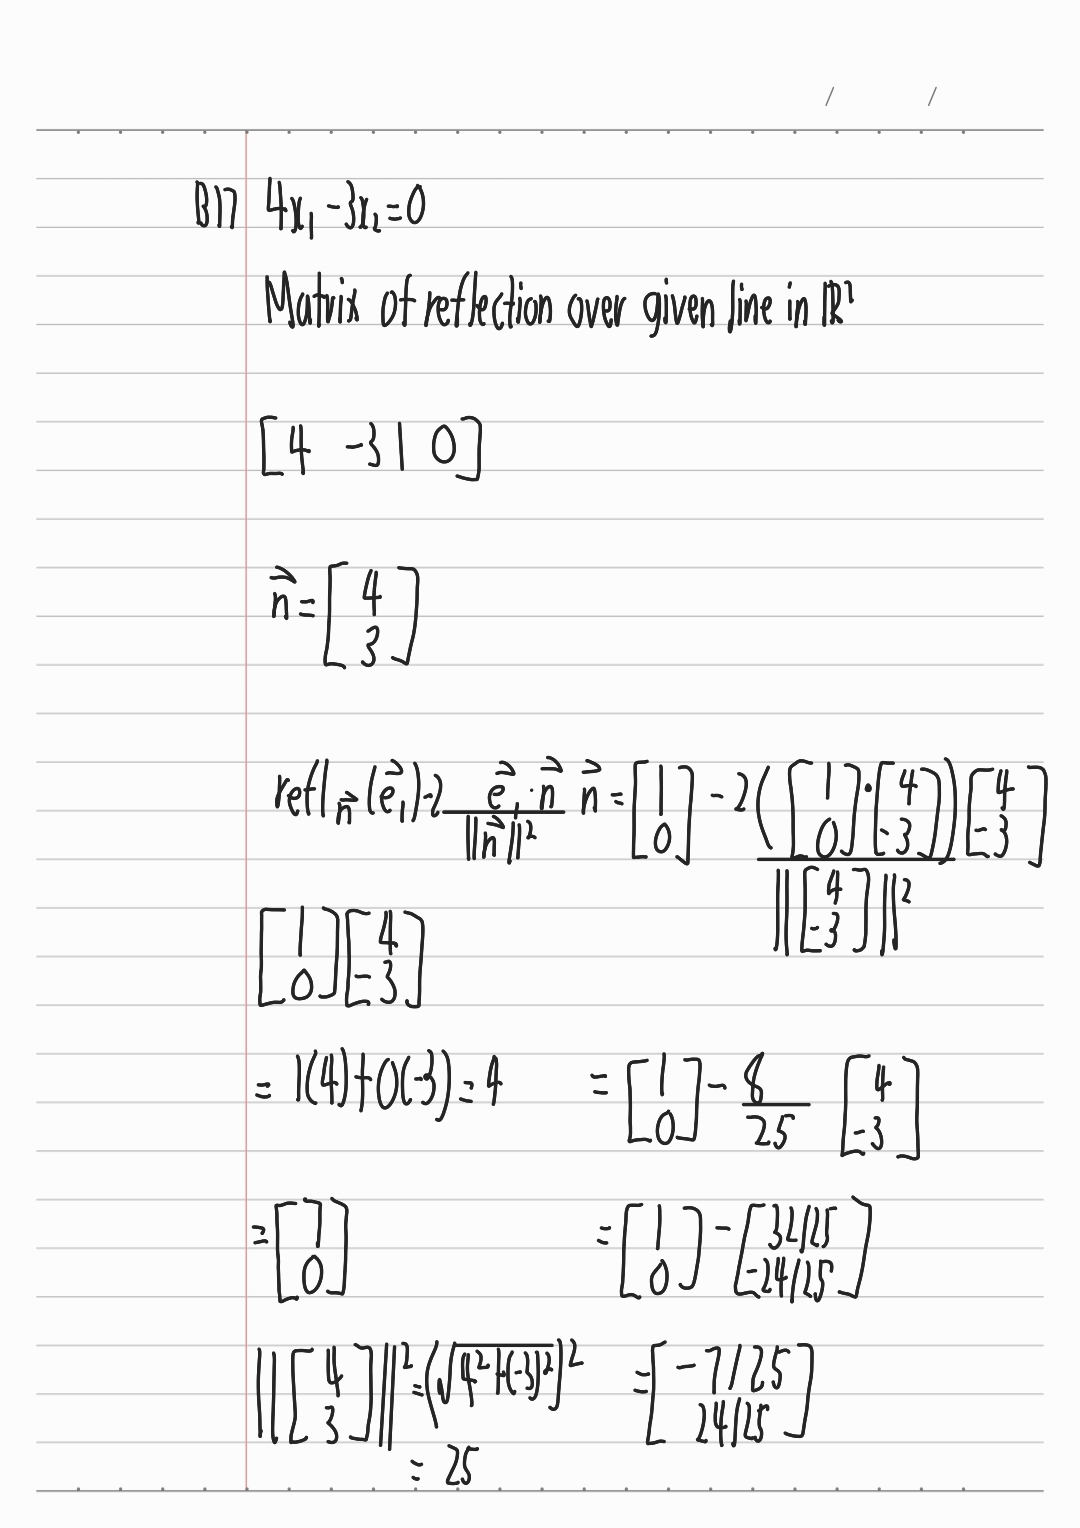 B17 4x₁ - 3x₂ = 0
Matrix of reflection over given line in ℝ²
[4 -3 | 0]
n⃗ = [4; 3]
refl_n⃗ (e⃗₁) - 2 (e⃗₁ · n⃗)/||n⃗||² n⃗ = [1; 0] - 2 ([1; 0] · [4; -3])/||[4; -3]||² [4; -3]
[1; 0] [4; -3]
= 1(4) + 0(-3) = 4 = [1; 0] - 8/25 [4; -3]
= [1; 0] = [1; 0] - [32/25; -24/25]
||[4; 3]||² = (√(4² + (-3)²))² = [-7/25; 24/25]
= 25